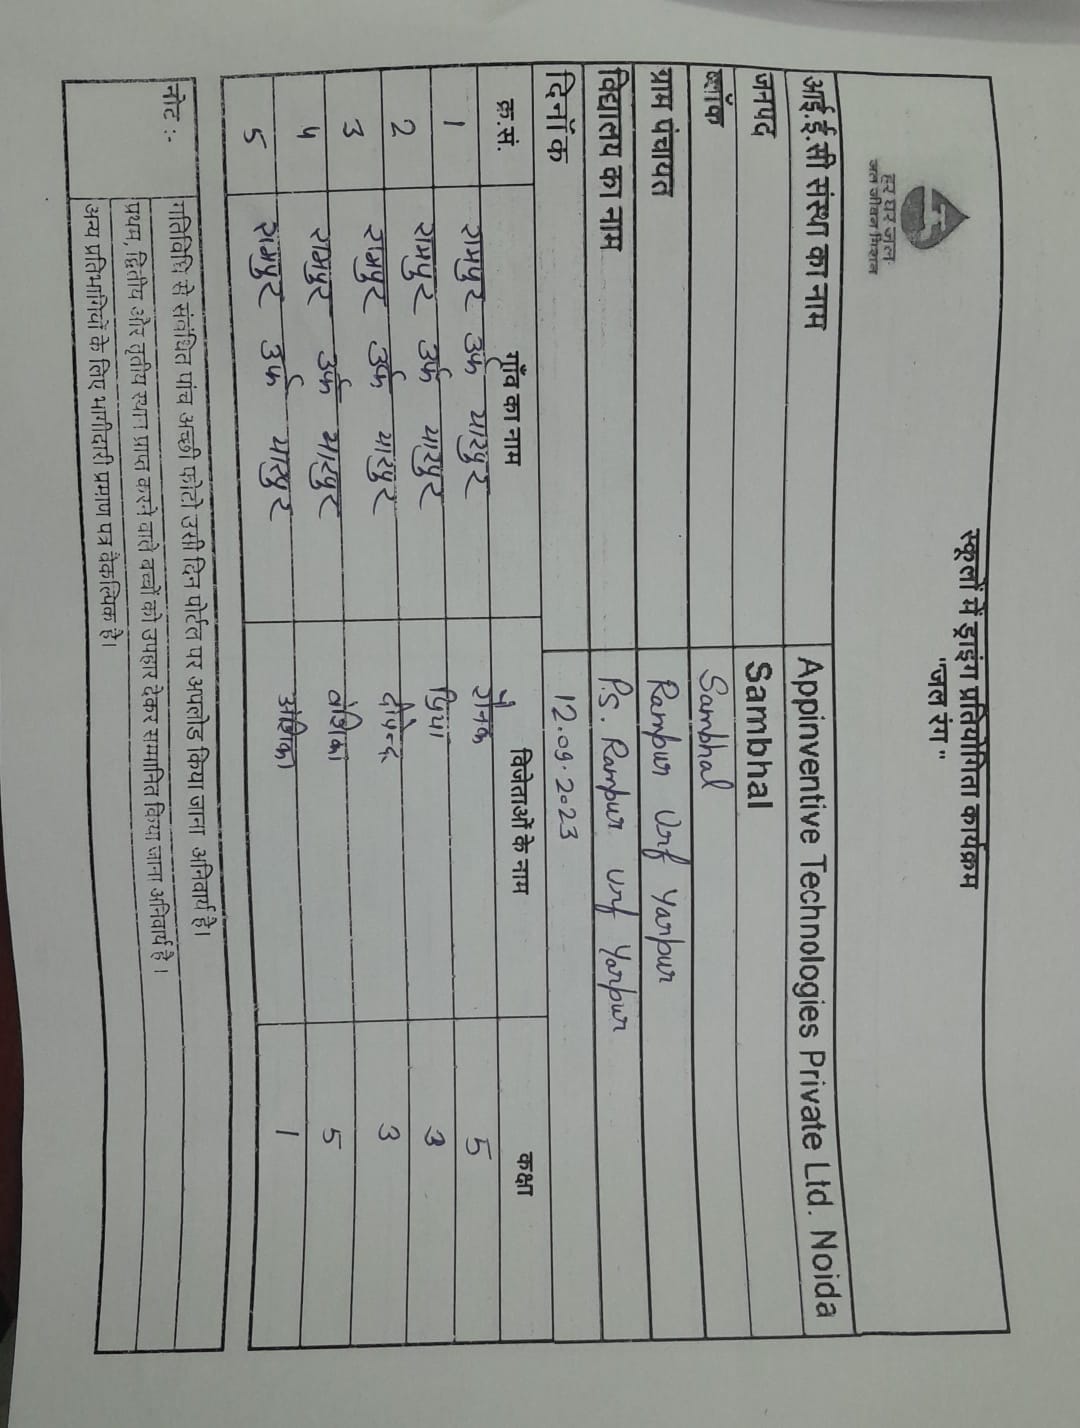 स्कूलों में ड्राइंग प्रतियोगिता कार्यक्रम
"जल रंग"
हर घर जल
जल जीवन मिशन
आई.ई.सी संस्था का नाम Appinventive Technologies Private Ltd. Noida
जनपद Sambhal
ब्लॉक Sambhal
ग्राम पंचायत Rampur Urf Yarpur
विद्यालय का नाम P.S. Rampur urf Yarpur
दिनॉंक 12.09.2023
क्र.सं. गाँव का नाम विजेताओं के नाम कक्षा
1 रामपुर उर्फ यारपुर रौनक 5
2 रामपुर उर्फ यारपुर प्रिया 3
3 रामपुर उर्फ यारपुर 3
4 रामपुर उर्फ यारपुर 5
5 रामपुर उर्फ यारपुर 1
नोट :- गतिविधि से संबंधित पांच अच्छी फोटो उसी दिन पोर्टल पर अपलोड किया जाना अनिवार्य है।
प्रथम, द्वितीय और तृतीय स्थान प्राप्त करने वाले बच्चों को उपहार देकर सम्मानित किया जाना अनिवार्य है।
अन्य प्रतिभागियों के लिए भागीदारी प्रमाण पत्र वैकल्पिक है।